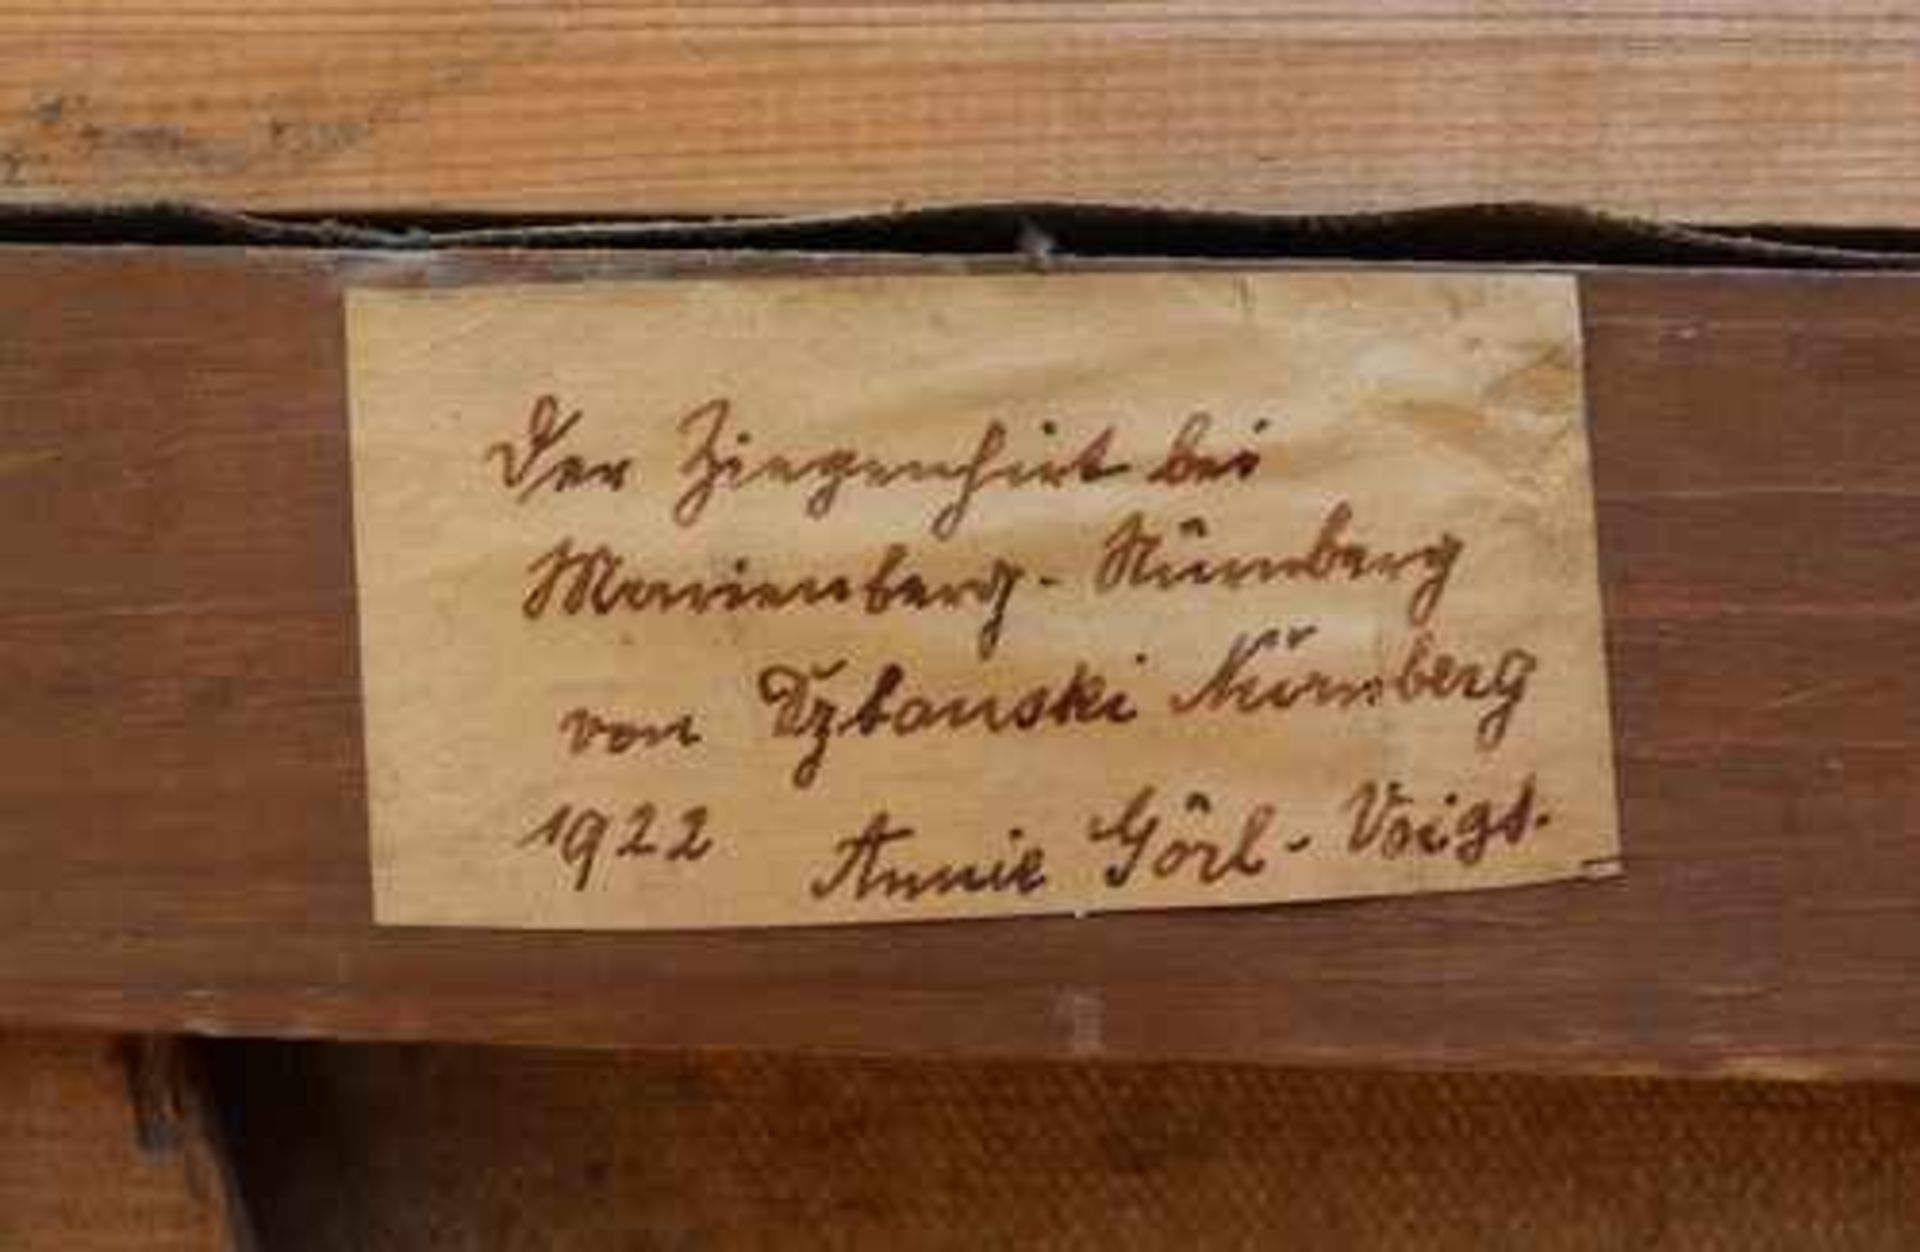 Der Ziegenhirt bei
Marienberg - Nürnberg
von Dzbanski Nürnberg
1922 Annie Görl - Voigt.